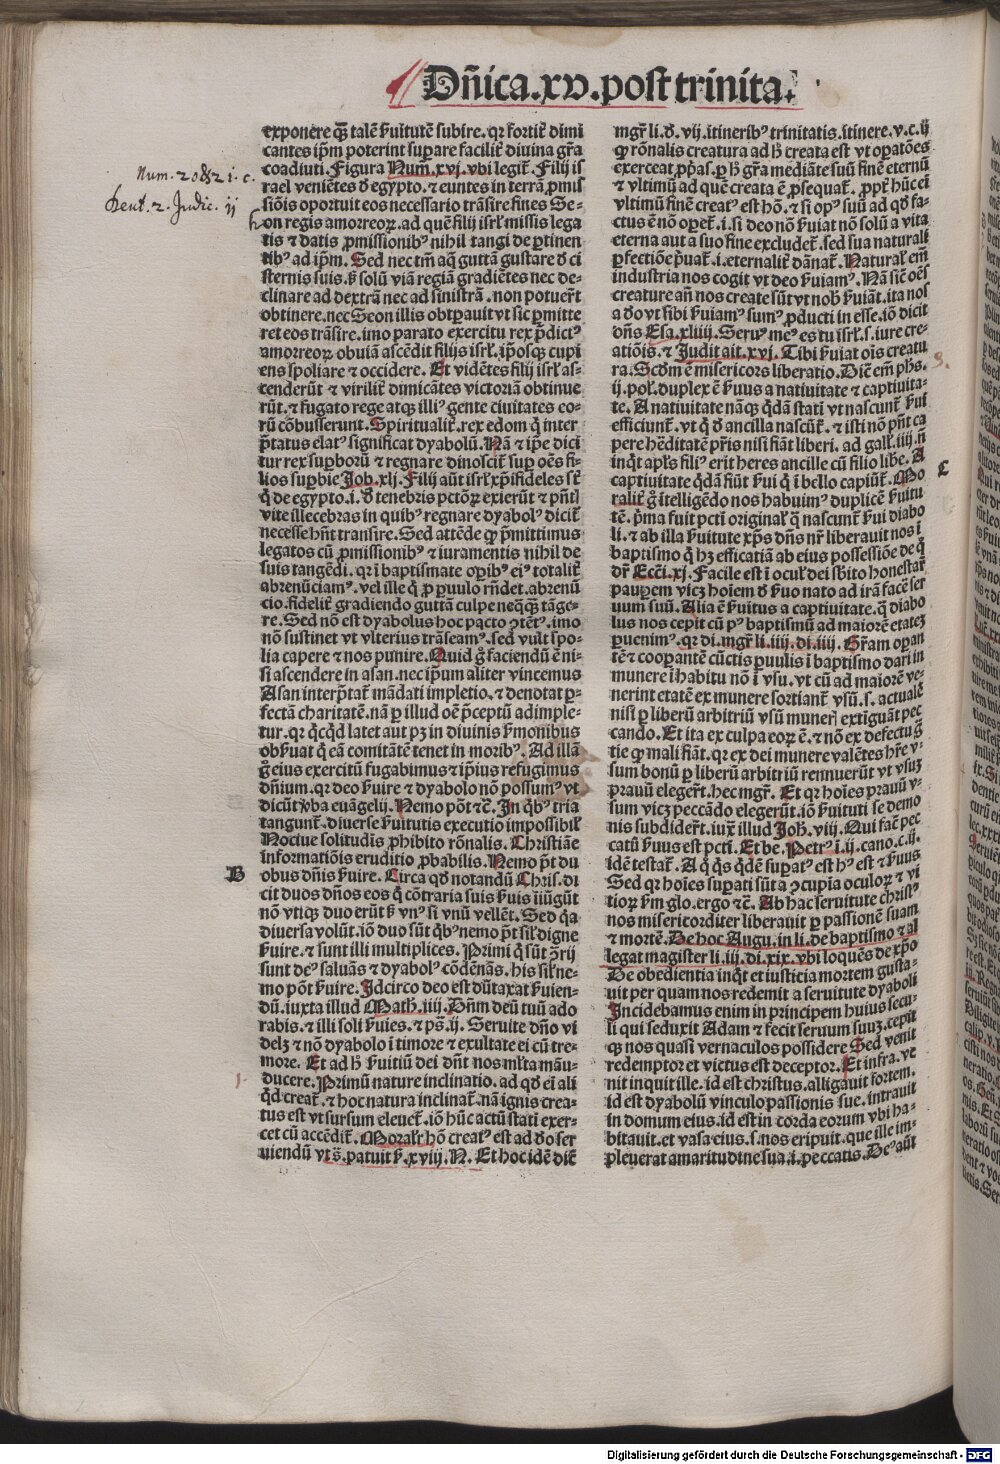 Dñica.xv.post trinita.
exponere q̃ʒ talẽ ſ̉uitutẽ ſubire.qꝛ fortiť dimi
cantes ip̃m poterint ſuꝑare faciliť diuina gr̃a
coadiuti.Figura Num̃.xvj.vbi legiť.Filij iſ
rael veniẽtes ð egypto.⁊ euntes in terrã ꝓmiſ
ſiõis oportuit eos neceſſario trãſire fines Se-
on regis amorreoꝝ.ad quẽ filij iſrł miſſis lega
tis ⁊ datis ꝓmiſſionibꝰ nihil tangi de ꝑtinen
tibꝰ ad ip̃m. Sed nec tm̃ aq̃ guttã guſtare ð ci
ſternis ſuis.ſꝫ ſolũ viã regiã gradiẽtes nec de-
clinare ad dextrã nec ad ſiniſtrã.non potuer̃t
obtinere.nec Seon illis obtꝑauit vt ſic ꝑmitte
ret eos trãſire.imo parato exercitu rex p̃dictꝰ
amorreoꝝ obuiã aſcẽdit filijs iſrł.ip̃oſqꝫ cupi
ens ſpoliare ⁊ occidere. Et vidẽtes filij iſrł aſ-
cenderũt ⁊ viriliť dimicãtes victoriã obtinue
rũt.⁊ fugato rege atqꝫ illiꝰ gente ciuitates eo-
rũ cõbuſſerunt. Spiritualiť.rex edom q̃ inter
p̃tatus elatꝰ ſignificat dyabolũ. Nã ⁊ ip̃e dici
tur rex ſuꝑborũ ⁊ regnare dinoſciť ſuꝑ oẽs fi-
lios ſuꝑbie Job.xlj. Filij aũt iſrł xp̃ifideles ſť
q̃ de egypto.i.ð tenebris pctõꝝ exierũt ⁊ pñtl
vite illecebras in quibꝰ regnare dyabolꝰ diciť
neceſſe hñt tranſire.Sed attẽde qꝙ p̃mittimus
legatos cũ ꝓmiſſionibꝰ ⁊ iuramentis nihil de
ſuis tangẽdi.qꝛ ĩ baptiſmate oꝑibꝰ eiꝰ totaliť
abrenũciamꝰ.vel ille q̃ ꝓ ꝑuulo rñdet.abrenũ
cio.fideliť gradiendo guttã culpe neq̃qꝫ tãge-
re.Sed nõ eſt dyabolus hoc pacto ꝯtẽtꝰ.imo
nõ ſuſtinet vt vlterius trãſeamꝰ.ſed vult ſpo-
lia capere ⁊ nos punire. Quid g̊ faciendũ ẽ ni-
ſi aſcendere in aſan.nec ip̃um aliter vincemus
Aſan interp̃tať mãdati impletio.⁊ denotat ꝑ-
fectã charitatẽ.nã ꝑ illud oẽ p̃ceptũ adimple-
tur.qꝛ qͥcqͥd latet aut pꝫ in diuinis ſ̉monibus
obſ̉uat q̃ eã comitãtẽ tenet in moribꝰ. Ad illã
g̊ eius exercitũ fugabimus ⁊ ip̃ius refugimus
dñium.qꝛ deo ſ̉uire ⁊ dyabolo nõ poſſumꝰ vt
dicũt ꝟba euãgelij. Nemo põt ⁊c̃. In qͥbꝰ tria
tangunť.diuerſe ſ̉uitutis executio impoſſibił
Nociue ſolitudis ꝓhibito rõnalis. Chriſtiãe
informatiõis eruditio ꝓbabilis. Nemo p̃t du
obus dñis ſ̉uire. Circa qð notandũ Chriſ.di
cit duos dños eos q̃ cõtraria ſuis ſ̉uis iniũgũt
nõ vtiqꝫ duo erũt ſꝫ vnꝰ ſi vnũ vellẽt. Sed q̃a
diuerſa volũt.iõ duo ſũt qͥbꝰ nemo p̃t ſił digne
ſ̉uire.⁊ ſunt illi multiplices. Primi q̃ ſũt ꝯrij
ſunt deꝰ ſaluãs ⁊ dyabolꝰ cõdẽnãs.his ſił ne-
mo põt ſ̉uire. Idcirco deo eſt dũtaxat ſ̉uien-
dũ.iuxta illud Math̃.iiij. Dñm deũ tuũ ado
rabis.⁊ illi ſoli ſ̉uies.⁊ pš.ij. Seruite dño vi
delꝫ ⁊ nõ dyabolo ĩ timore ⁊ exultate ei cũ tre-
more. Et ad hꝫ ſ̉uitiũ dei dñt nos mľta mãu-
ducere. Primũ nature inclinatio.ad qð ei ali
qͥd creať.⁊ hoc natura inclinať.nã ignis crea-
tus eſt vt ſurſum eleueť.iõ hũc actũ ſtati exer-
cet cũ accẽdiť. Moraľr hõ creatꝰ eſt ad ðo ſer
uiendũ vt š.patuit ſ̉.xviij.N. Et hoc idẽ dič
mgr̃ li.ð.vij.itineribꝰ trinitatis.itinere.v.c.ij
qꝙ rõnalis creatura ad hꝫ creata eſt vt oꝑatões
exerceat ꝓp̃as.ꝑ hꝫ gr̃a mediãte ſuũ finẽ eternũ
⁊ vltimũ ad quẽ creata ẽ ꝓſequať. ꝓpt̃ hũc ei
vltimũ finẽ creatꝰ eſt hõ.⁊ ſi opꝰ ſuũ ad qð fa-
ctus ẽ nõ oꝑeť.i.ſi deo nõ ſ̉uiat nõ ſolũ a vita
eterna aut a ſuo fine excludeť.ſed ſua naturali
ꝑfectiõe p̃uať.i.eternaliť dãnať. Naturał em̃
induſtria nos cogit vt deo ſ̉uiamꝰ. Nã ſic̃ oẽs
creature añ nos create ſũt vt nob̃ ſ̉uiãt.ita nos
a ðo vt ſibi ſ̉uiamꝰ ſumꝰ ꝓducti in eſſe.iõ dicit
dñs Eſa.xliiij. Seruꝰ meꝰ es tu iſrł.ſ.iure cre-
atiõis.⁊ Judit ait.xvj. Tibi ſ̉uiat oĩs creatu
ra.Scðm ẽ miſericors liberatio. Diẽ em̃ ph̃s.
ij.poł.duplex ẽ ſ̉uus a natiuitate ⁊ captiuita-
te. A natiuitate nãqꝫ qͥdã ſtati vt naſcunť ſ̉ui
efficiunť.vt q̃ ð ancilla naſcũť.⁊ iſti nõ pñt ca
pere hẽditatẽ pr̃is niſi fiãt liberi.ad gał.iiij.ñ
inqͥt apľs filiꝰ erit heres ancille cũ filio libe. A
captiuitate qͥdã fiũt ſ̉ui q̃ ĩ bello capiũť. Mo
raliť g̊ ĩtelligẽdo nos habuimꝰ duplicẽ ſ̉uitu
tẽ. p̃ma fuit pcti originał q̃ naſcunť ſ̉ui diabo
li.⁊ ab illa ſ̉uitute xp̃s dñs nr̃ liberauit nos ĩ
baptiſmo q̃ hꝫ efficatiã ab eius poſſeſſiõe de q̃
dr̃ Ecc̃i.xj. Facile eſt ĩ ocuľ dei ſb̃ito honeſtar̃
pauꝑem vicꝫ hoĩem ð ſ̉uo nato ad irã facẽ ſer
uum ſuũ. Alia ẽ ſ̉uitus a captiuitate.q̃ diabo
lus nos cepit cũ pꝰ baptiſmũ ad maiorẽ etatẽ
ꝑuenimꝰ.qꝛ di.mgr̃ li.iiij.di.iiij. Gr̃am oꝑan
tẽ ⁊ cooꝑantẽ cũctis ꝑuulis ĩ baptiſmo dari in
munere ĩ habitu nõ ĩ vſu.vt cũ ad maiorẽ ve-
nerint etatẽ ex munere ſortianť vſũ.ſ.actualẽ
niſi ꝑ liberũ arbitriũ vſũ muneꝭ extiguãt pec
cando. Et ita ex culpa eoꝝ ẽ.⁊ nõ ex defectu g̃
tie qꝙ mali fiãt.qꝛ ex dei munere valẽtes hr̃e v-
ſum bonũ ꝑ liberũ arbitriũ rennuerũt vt vſuꝫ
prauũ elegeŕt.hec mgr̃. Et qꝛ hoĩes prauũ v-
ſum vicꝫ peccãdo elegerũt.iõ ſ̉uituti ſe demo
nis ſubdideŕt.iux̃ illud Joh̃.viij. Qui fac̃ pec
catũ ſ̉uus eſt pcti. Et be. Petrꝰ ĩ.ij.cano.c.ij.
idẽ teſtať. A q̃ qͥs qͥdẽ ſuꝑatꝰ eſt hꝰ eſt ⁊ ſ̉uus
Sed qꝛ hoĩes ſuꝑati ſũt a ꝯcupĩa oculoꝝ ⁊ vi
tioꝝ ſm glo.ergo ⁊c̃. Ab hac ſeruitute chriſtꝰ
nos miſericorditer liberauit ꝑ paſſionẽ ſuam
⁊ mortẽ. De hoc Augu.in li.de baptiſmo ⁊ al
legat magiſter li.iij.di.xix.vbi loquẽs de xp̃o
De obedientia inqͥt et iuſticia mortem guſta-
uit per quam nos redemit a ſeruitute dyaboli
Incidebamus enim in principem huius ſecu-
li qui ſeduxit Adam ⁊ fecit ſeruum ſuuꝫ.cepit
qꝫ nos quaſi vernaculos poſſidere Sed venit
redemptor et victus eſt deceptor. Et infra.ve
nit inquit ille.id eſt chriſtus.alligauit fortem.
id eſt dyabolũ vinculo paſſionis ſue.intrauit
in domum eius.id eſt in corda eorum vbi ha-
bitauit.et vaſa eius.ſ.nos eripuit.que ille im-
pleuerat amaritudine ſua.i.peccatis. Deꝰ aũt
Num. 20 & 21. c.
Deut. 2. Judic. ij
B
C
Digitalisierung gefördert durch die Deutsche Forschungsgemeinschaft - DFG